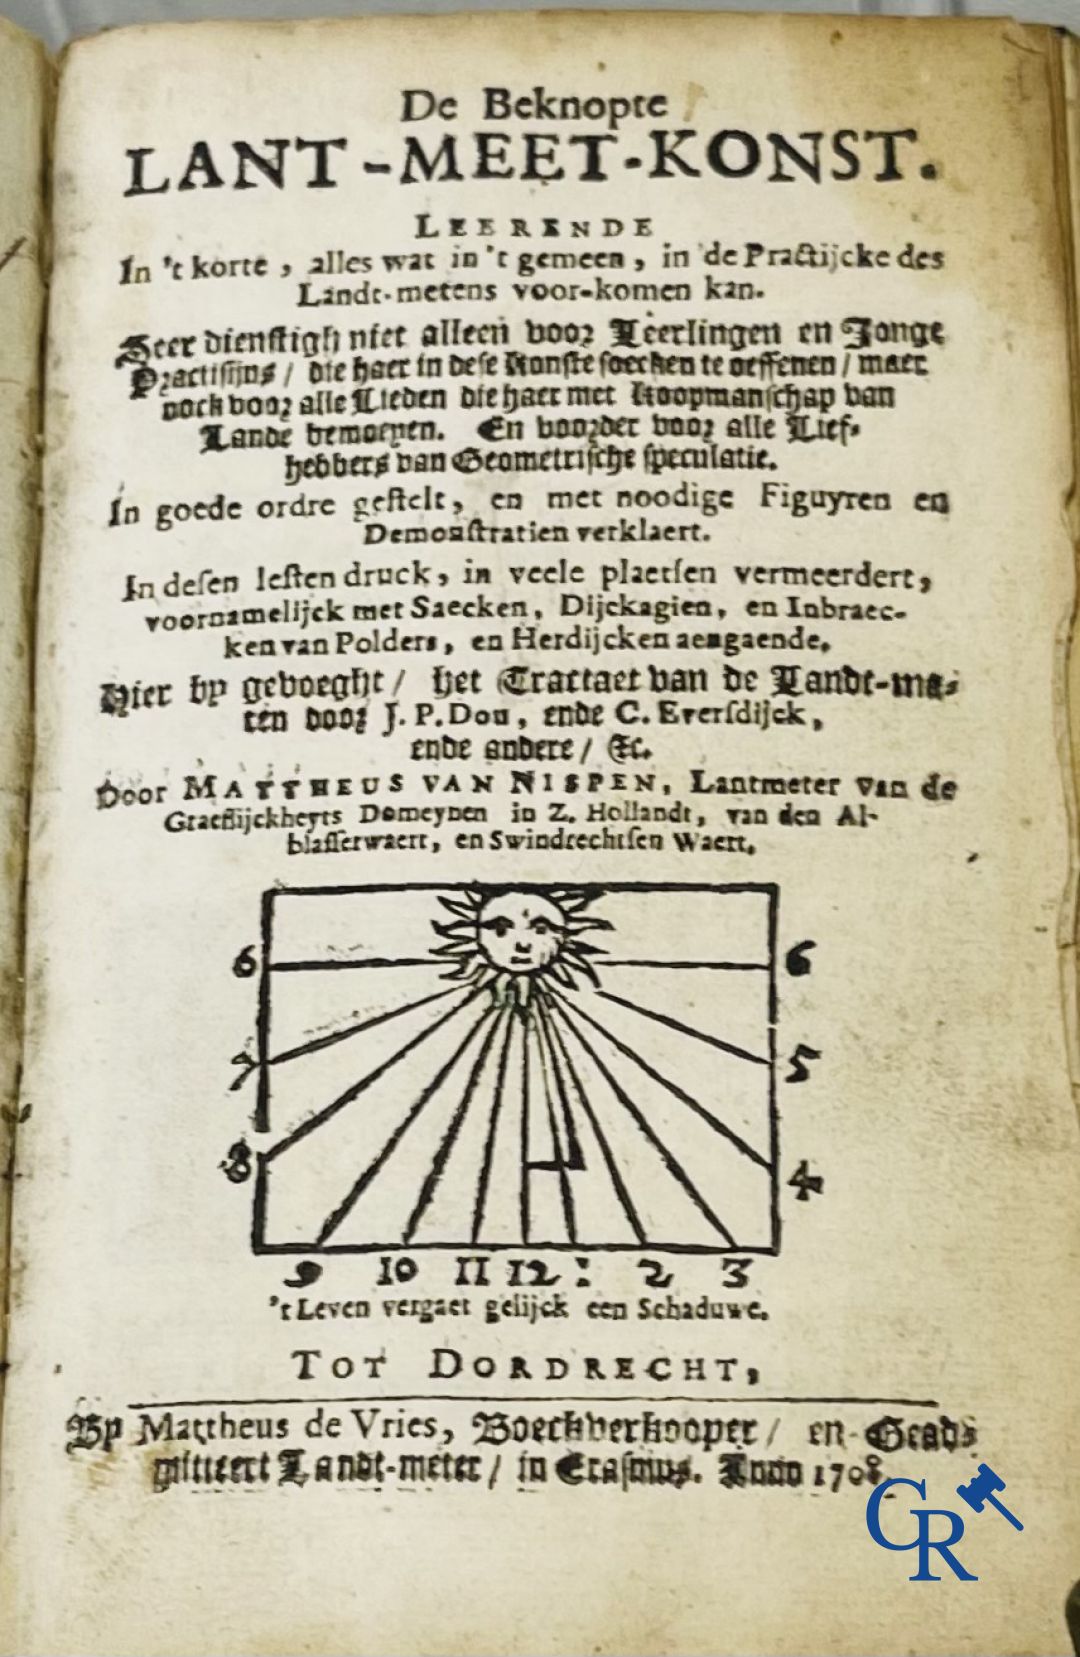 De Beknopte
LANT-MEET-KONST.
LEERENDE
In 't korte, alles wat in 't gemeen, in de Practijcke des
Landt-metens voor-komen kan.
Seer dienstigh niet alleen voor Leerlingen en Jonge
Practisijns / die haer in dese Konste soecken te oeffenen / maer
oock voor alle Lieden die haer met Koopmanschap van
Lande bemoeyen. En voorder voor alle Lief-
hebbers van Geometrische speculatie.
In goede ordre gestelt, en met noodige Figuyren en
Demonstratien verklaert.
In desen lesten druck, in veele plaetsen vermeerdert,
voornamelijck met Saecken, Dijckagien, en Inbraec-
ken van Polders, en Herdijcken aengaende.
Hier by gevoeght / het Tractaet van de Landt-ma-
ten door J. P. Dou, ende C. Eversdijck,
ende andere / &c.
Door MATTHEUS VAN NISPEN, Lantmeter van de
Graeflijckheyts Domeynen in Z. Hollandt, van den Al-
blasserwaert, en Swindrechtsen Waert.
6 6
7 5
8 4
9 10 11 12 : 2 3
't Leven vergaet gelijck een Schaduwe.
TOT DORDRECHT,
By Mattheus de Vries, Boeckverkooper / en Gead-
mitteert Landt-meter / in Erasmus. Anno 1708.
CR